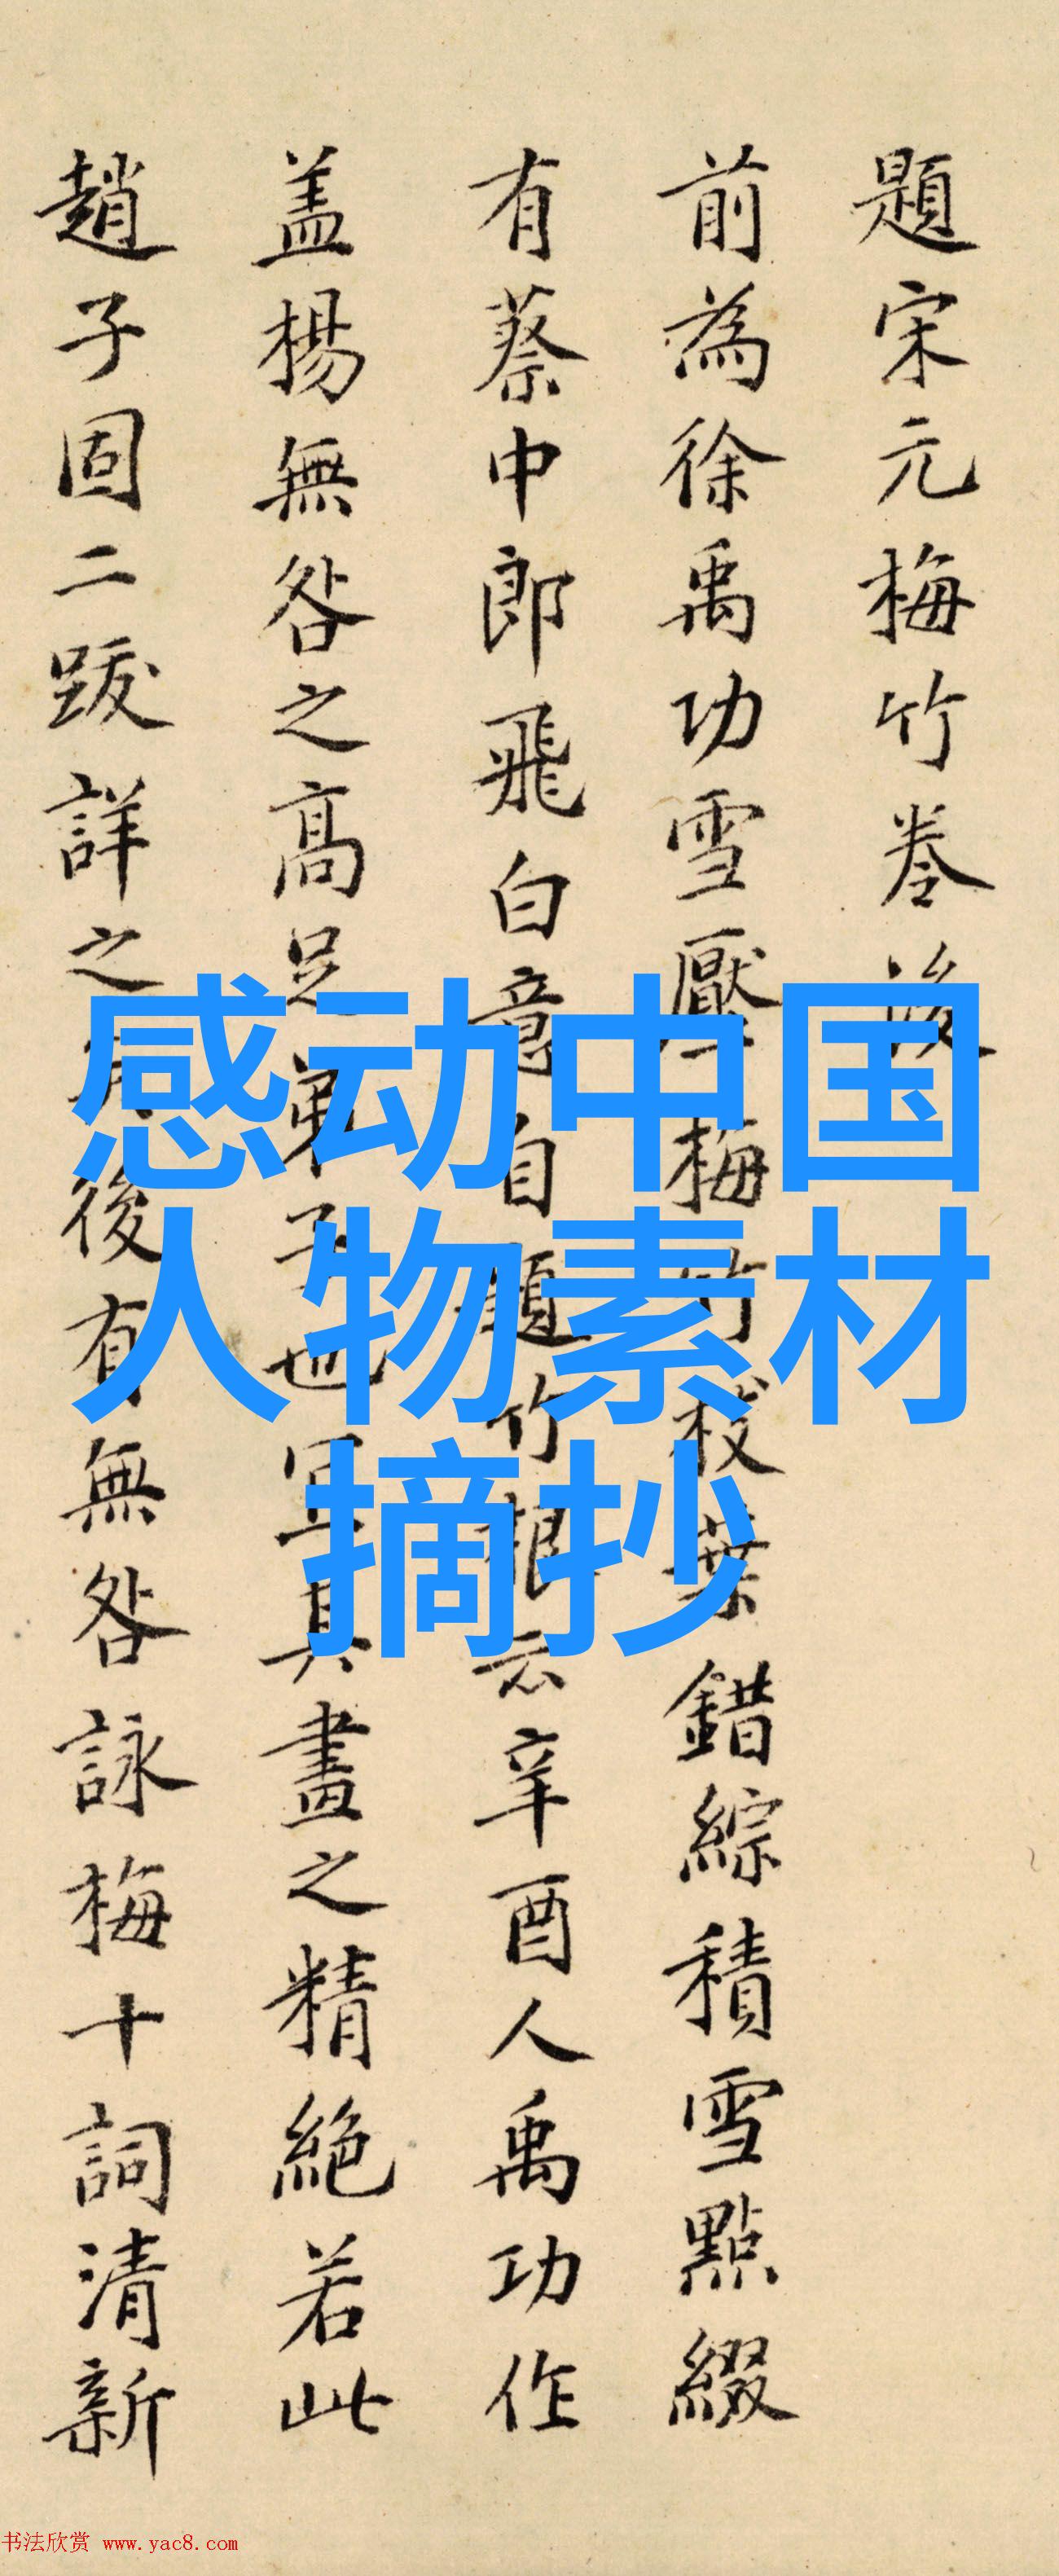 題宋元梅竹卷後
前為徐禹功雪壓梅竹枝葉錯綜積雪點綴
有蔡中郎飛白意自題竹根云辛酉人禹功作
盖楊無咎之高足弟子也宜其畫之精絶若此
趙子固二跋詳之矣後有無咎詠梅十詞清新
感动中国
人物素材
摘抄
书法欣赏 www.yac8.com